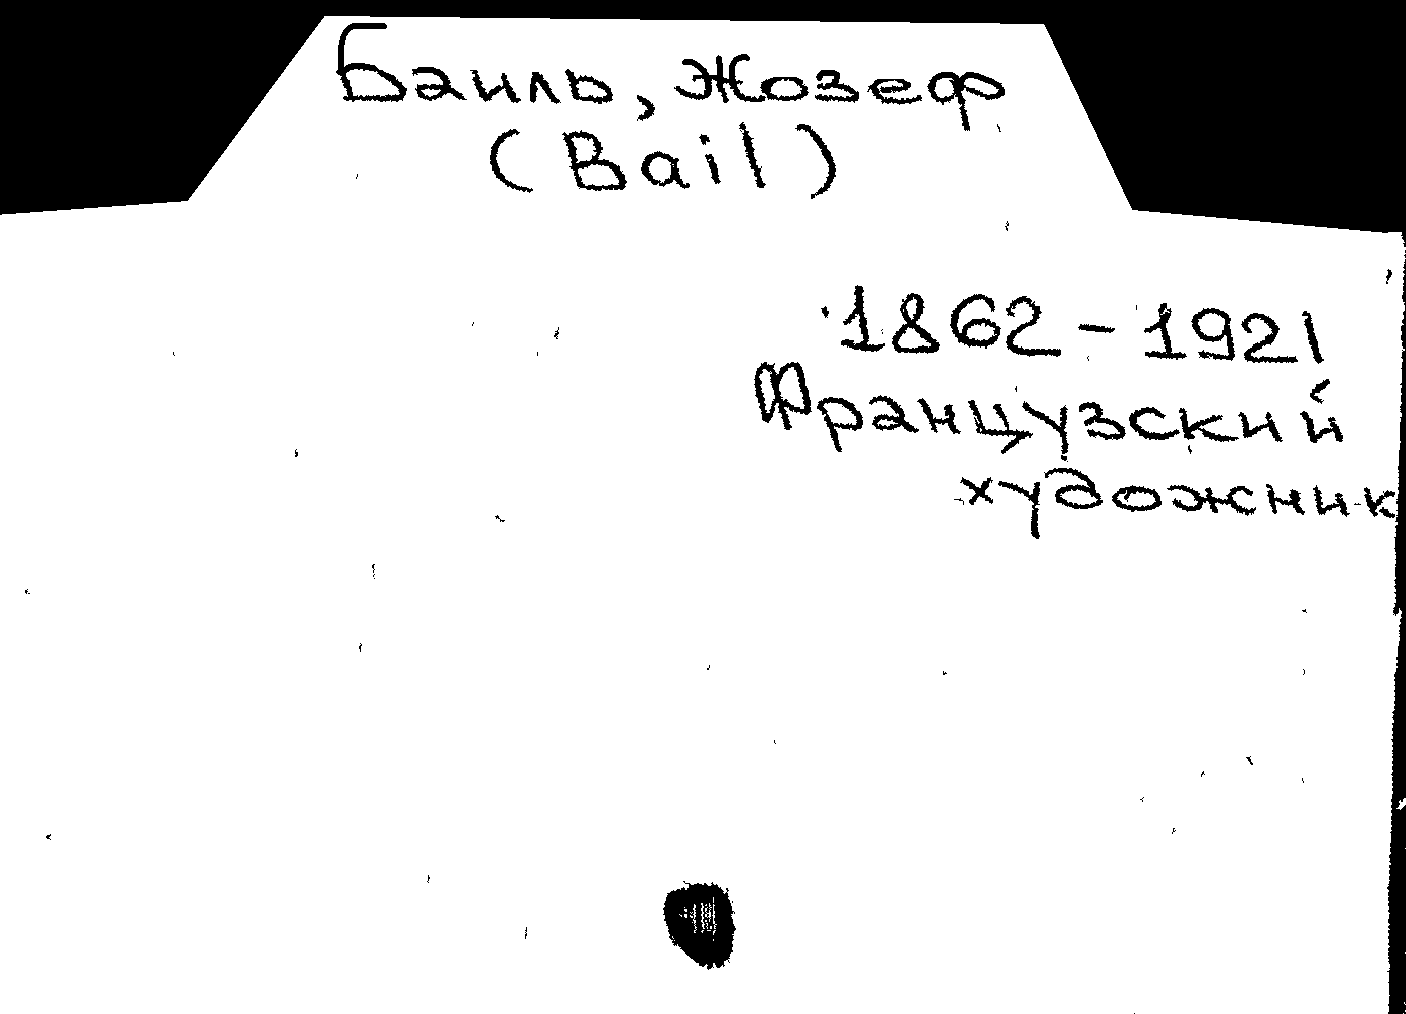 Баиль, Жозеф
(Bail)
1862-1921
Французский
художник